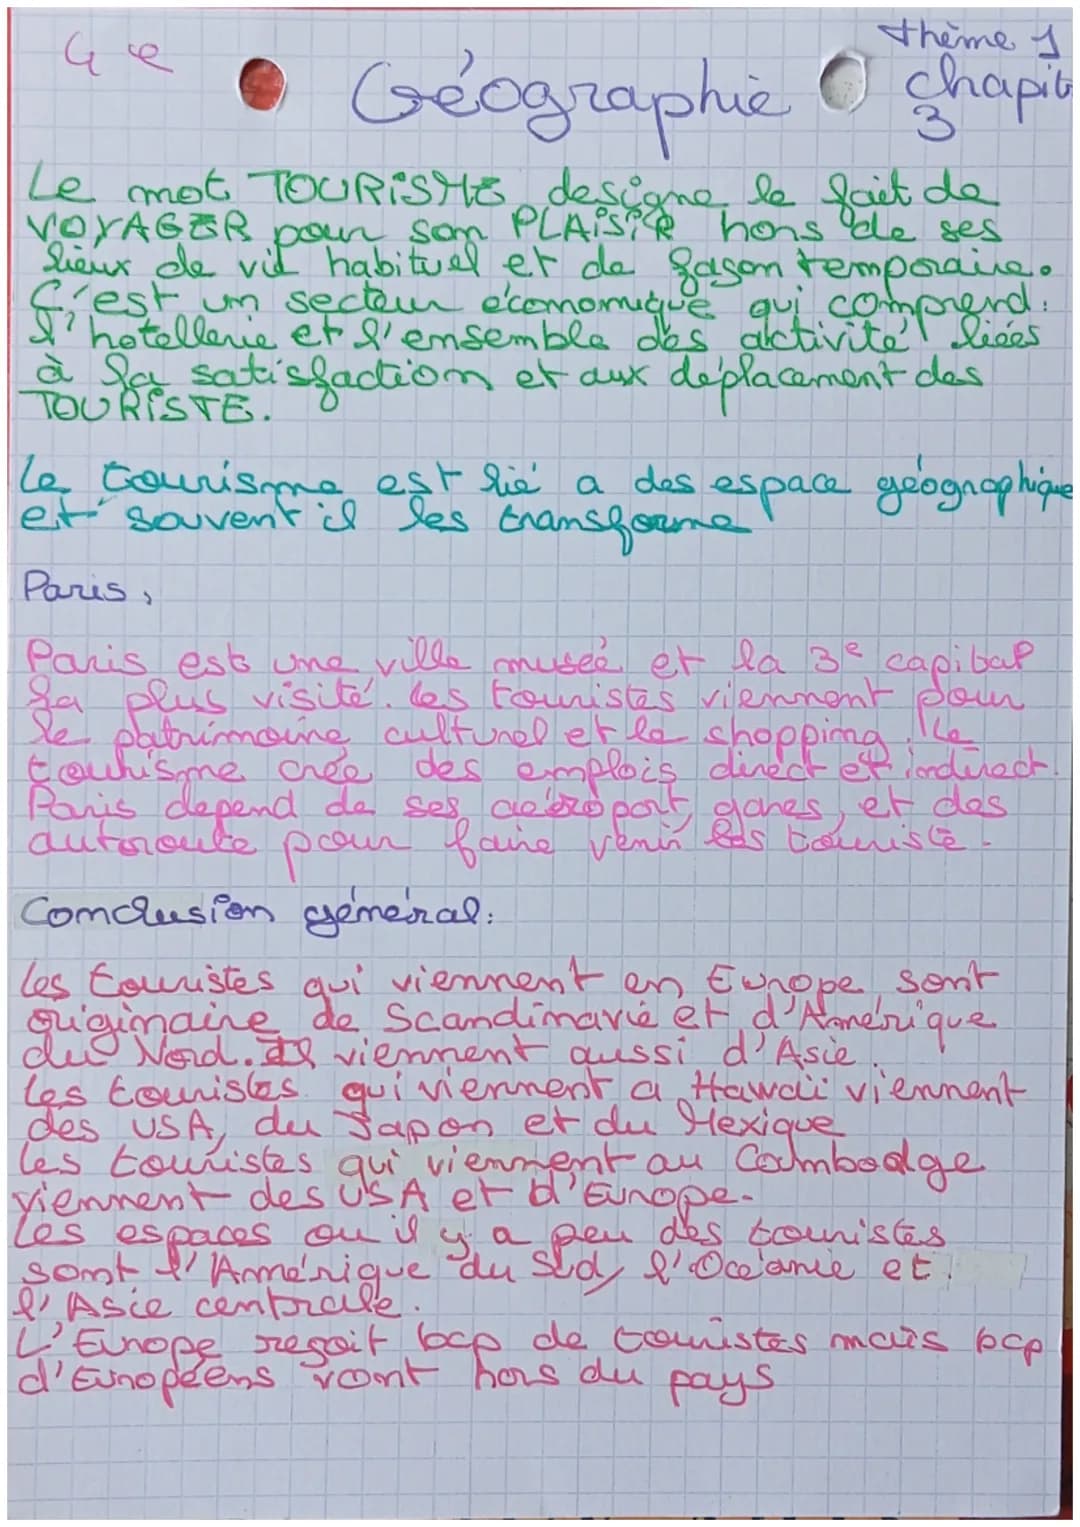 4e
Géographie
thème 1
chapit
3
Le mot TOURiSME designe le fait de
VOYAGER pour son PLAiSiR hors de ses
lieux de vie habituel et de façon temporaire.
C'est un secteur économique qui comprend:
l'hotellerie et l'ensemble des activité liées
à la satisfaction et aux déplacement des
TOURiSTE.
Le tourisme est lié a des espace géographique
et souvent il les transforme
Paris,
Paris est une ville museé et la 3e capital
la plus visité. les touristes viennent pour
le patrimoine culturel et le shopping. Le
tourisme crée des emplois direct et indirect.
Paris depend de ses aéroport, gares, et des
autoroute pour faire venir les touriste.
Conclusion général:
les touristes qui viennent en Europe sont
originaire de Scandinavie et d'Amérique
du Nord. Il viennent aussi d'Asie.
les touristes qui viennent a Hawaii viennent
des USA, du Japon et du Mexique
les touristes qui viennent au Coumbodge
viennent des USA et d'Europe.
Les espaces ou il y a peu des touristes
sont l'Amérique du Sud, l'Océanie et
l'Asie centrale.
L'Europe reçoit bcp de touristes mais bcp
d'Européens vont hors du pays